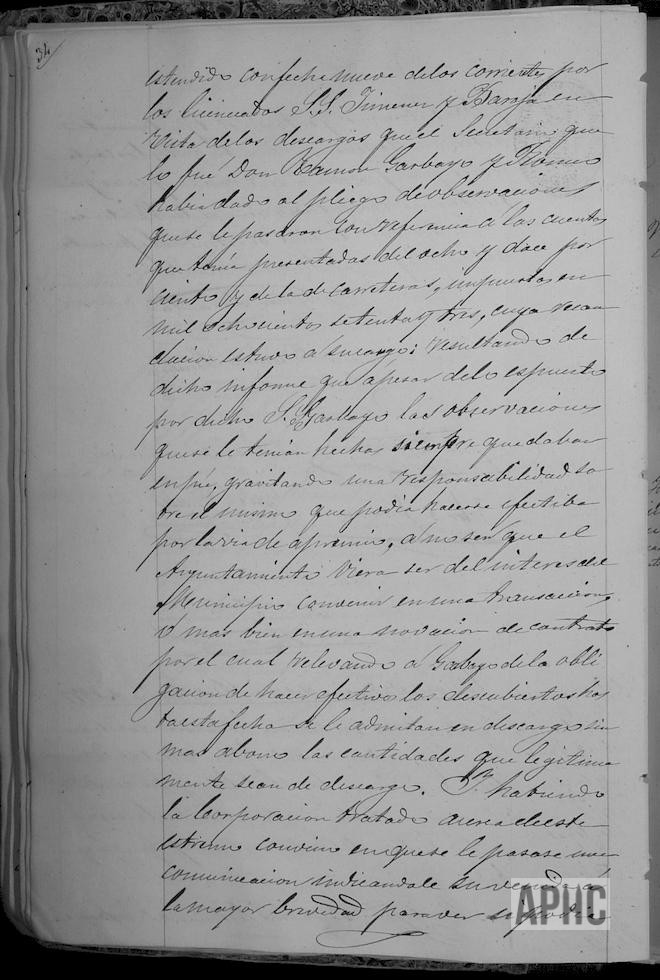 34
estendido con fecha nueve de los corrientes por
los licenciados S.S. Jimenez y Baroja en
vista de los descargos que el Secretario que
lo fué Don Ramon Garbayo y
habia dado al pliego de observaciones
que se le pasaron con referencia a las cuentas
que tenia presentadas del ocho y doce por
ciento y de la de carreteras, impuestos en
mil ochocientos setenta y tres, cuya recau
dacion estuvo á su cargo: resultando de
dicho informe que apesar de lo espuesto
por dicho S. Garbayo las observaciones
que se le tenian hechas siempre quedaban
en pié, gravitando una responsabilidad so
bre el mismo que podia hacerse efectiba
por la via de apremio, á no ser que el
Ayuntamiento viera ser del interes del
Municipio convenir en una transacion,
ó mas bien en una novacion de contrato
por el cual relevando á Gabayo de la obli
gacion de hacer efectivo los descubiertos has
ta esta fecha se le admitan en descargo sin
mas abono las cantidades que legitima
mente sean de descargo. Y habiendo
la Corporacion tratado acerca de este
estremo convino en que se le pasase una
comunicacion indicandole su venida á
la mayor brevedad para ver si podia
APHC